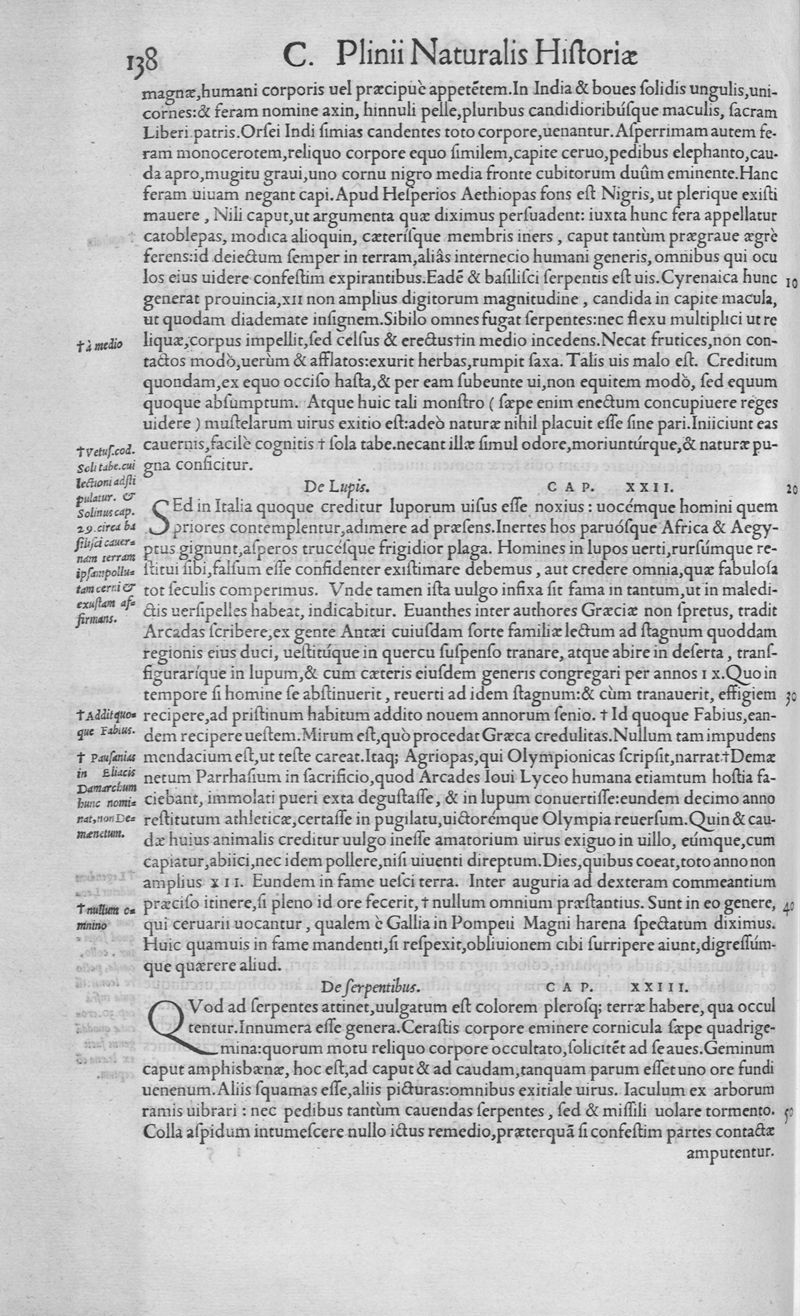 138
C. Plinii Naturalis Hiſtoriæ
magnæ,humani corporis uel præcipuè appetētem.In India & boues ſolidis ungulis,uni-
cornes:& feram nomine axin, hinnuli pelle,pluribus candidioribúſque maculis, ſacram
Liberi patris.Orſei Indi ſimias candentes toto corpore,uenantur.Aſperrimam autem fe-
ram monocerotem,reliquo corpore equo ſimilem,capite ceruo,pedibus elephanto,cau-
da apro,mugitu graui,uno cornu nigro media fronte cubitorum duûm eminente.Hanc
feram uiuam negant capi.Apud Heſperios Aethiopas fons eſt Nigris, ut plerique exiſti
mauere , Nili caput,ut argumenta quæ diximus perſuadent: iuxta hunc fera appellatur
catoblepas, modica alioquin, cæteriſque membris iners , caput tantùm prægraue ægrè
ferens:id deiectum ſemper in terram,aliâs internecio humani generis, omnibus qui ocu
los eius uidere confeſtim expirantibus.Eadē & baſiliſci ſerpentis eſt uis.Cyrenaica hunc 10
generat prouincia,XII non amplius digitorum magnitudine , candida in capite macula,
ut quodam diademate inſignem.Sibilo omnes fugat ſerpentes:nec flexu multiplici ut re
†à medio
liquæ,corpus impellit,ſed celſus & erectus†in medio incedens.Necat frutices,non con-
tactos modò,uerùm & afflatos:exurit herbas,rumpit ſaxa.Talis uis malo eſt. Creditum
quondam,ex equo occiſo haſta,& per eam ſubeunte ui,non equitem modò, ſed equum
quoque abſumptum. Atque huic tali monſtro ( ſæpe enim enectum concupiuere reges
uidere ) muſtelarum uirus exitio eſt:adeò naturæ nihil placuit eſſe ſine pari.Iniiciunt eas
†Vetuſ.cod.
Soli tabe.cui
lectioni adſti
pulatur. &
Solinus cap.
29.circa ba
ſiliſci cauer=
nam terram
ipſam pollu=
tam cerni &
exuſtam af=
firmans.
cauernis,facilè cognitis † ſola tabe.necant illæ ſimul odore,moriuntúrque,& naturæ pu-
gna conficitur.
De Lupis. CAP. XXII. 20
SEd in Italia quoque creditur luporum uiſus eſſe noxius : uocémque homini quem
priores contemplentur,adimere ad præſens.Inertes hos paruóſque Africa & Aegy-
ptus gignunt,aſperos trucéſque frigidior plaga. Homines in lupos uerti,rurſúmque re-
ſtitui ſibi,falſum eſſe confidenter exiſtimare debemus , aut credere omnia,quæ fabuloſa
tot ſeculis comperimus. Vnde tamen iſta uulgo infixa ſit fama in tantum,ut in maledi-
ctis uerſipelles habeat, indicabitur. Euanthes inter authores Græciæ non ſpretus, tradit
Arcadas ſcribere,ex gente Antæi cuiuſdam ſorte familiæ lectum ad ſtagnum quoddam
regionis eius duci, ueſtitúque in quercu ſuſpenſo tranare, atque abire in deſerta , tranſ-
figurariʹque in lupum,& cum cæteris eiuſdem generis congregari per annos IX.Quo in
tempore ſi homine ſe abſtinuerit , reuerti ad idem ſtagnum:& cùm tranauerit, effigiem 30
†Addit quo=
que Fabius.
recipere,ad priſtinum habitum addito nouem annorum ſenio. † Id quoque Fabius,ean-
dem recipere ueſtem.Mirum eſt,quò procedat Græca credulitas.Nullum tam impudens
† Pauſanias
in Eliacis
Damarchum
hunc nomi=
nat,non De=
mænetum.
mendacium eſt,ut teſte careat.Itaq; Agriopas,qui Olympionicas ſcripſit,narrat†Demæ
netum Parrhaſium in ſacrificio,quod Arcades Ioui Lyceo humana etiamtum hoſtia fa-
ciebant, immolati pueri exta deguſtaſſe, & in lupum conuertiſſe:eundem decimo anno
reſtitutum athleticæ,certaſſe in pugilatu,uictorémque Olympia reuerſum.Quin & cau-
dæ huius animalis creditur uulgo ineſſe amatorium uirus exiguo in uillo, eúmque,cum
capiatur,abiici,nec idem pollere,niſi uiuenti direptum.Dies,quibus coeat,toto anno non
amplius XII. Eundem in fame ueſci terra. Inter auguria ad dexteram commeantium
†nullum o=
mnino
præciſo itinere,ſi pleno id ore fecerit, † nullum omnium præſtantius. Sunt in eo genere, 40
qui ceruarii uocantur , qualem è Gallia in Pompeii Magni harena ſpectatum diximus.
Huic quamuis in fame mandenti,ſi reſpexit,obliuionem cibi ſurripere aiunt,digreſſúm-
que quærere aliud.
De ſerpentibus. CAP. XXIII.
QVod ad ſerpentes attinet,uulgatum eſt colorem pleroſq; terræ habere, qua occul
tentur.Innumera eſſe genera.Ceraſtis corpore eminere cornicula ſæpe quadrige-
mina:quorum motu reliquo corpore occultato,ſolicitēt ad ſe aues.Geminum
caput amphisbænæ, hoc eſt,ad caput & ad caudam,tanquam parum eſſet uno ore fundi
uenenum.Aliis ſquamas eſſe,aliis picturas:omnibus exitiale uirus. Iaculum ex arborum
ramis uibrari : nec pedibus tantùm cauendas ſerpentes , ſed & miſſili uolare tormento. 50
Colla aſpidum intumeſcere nullo ictus remedio,præterquā ſi confeſtim partes contactæ
amputentur.